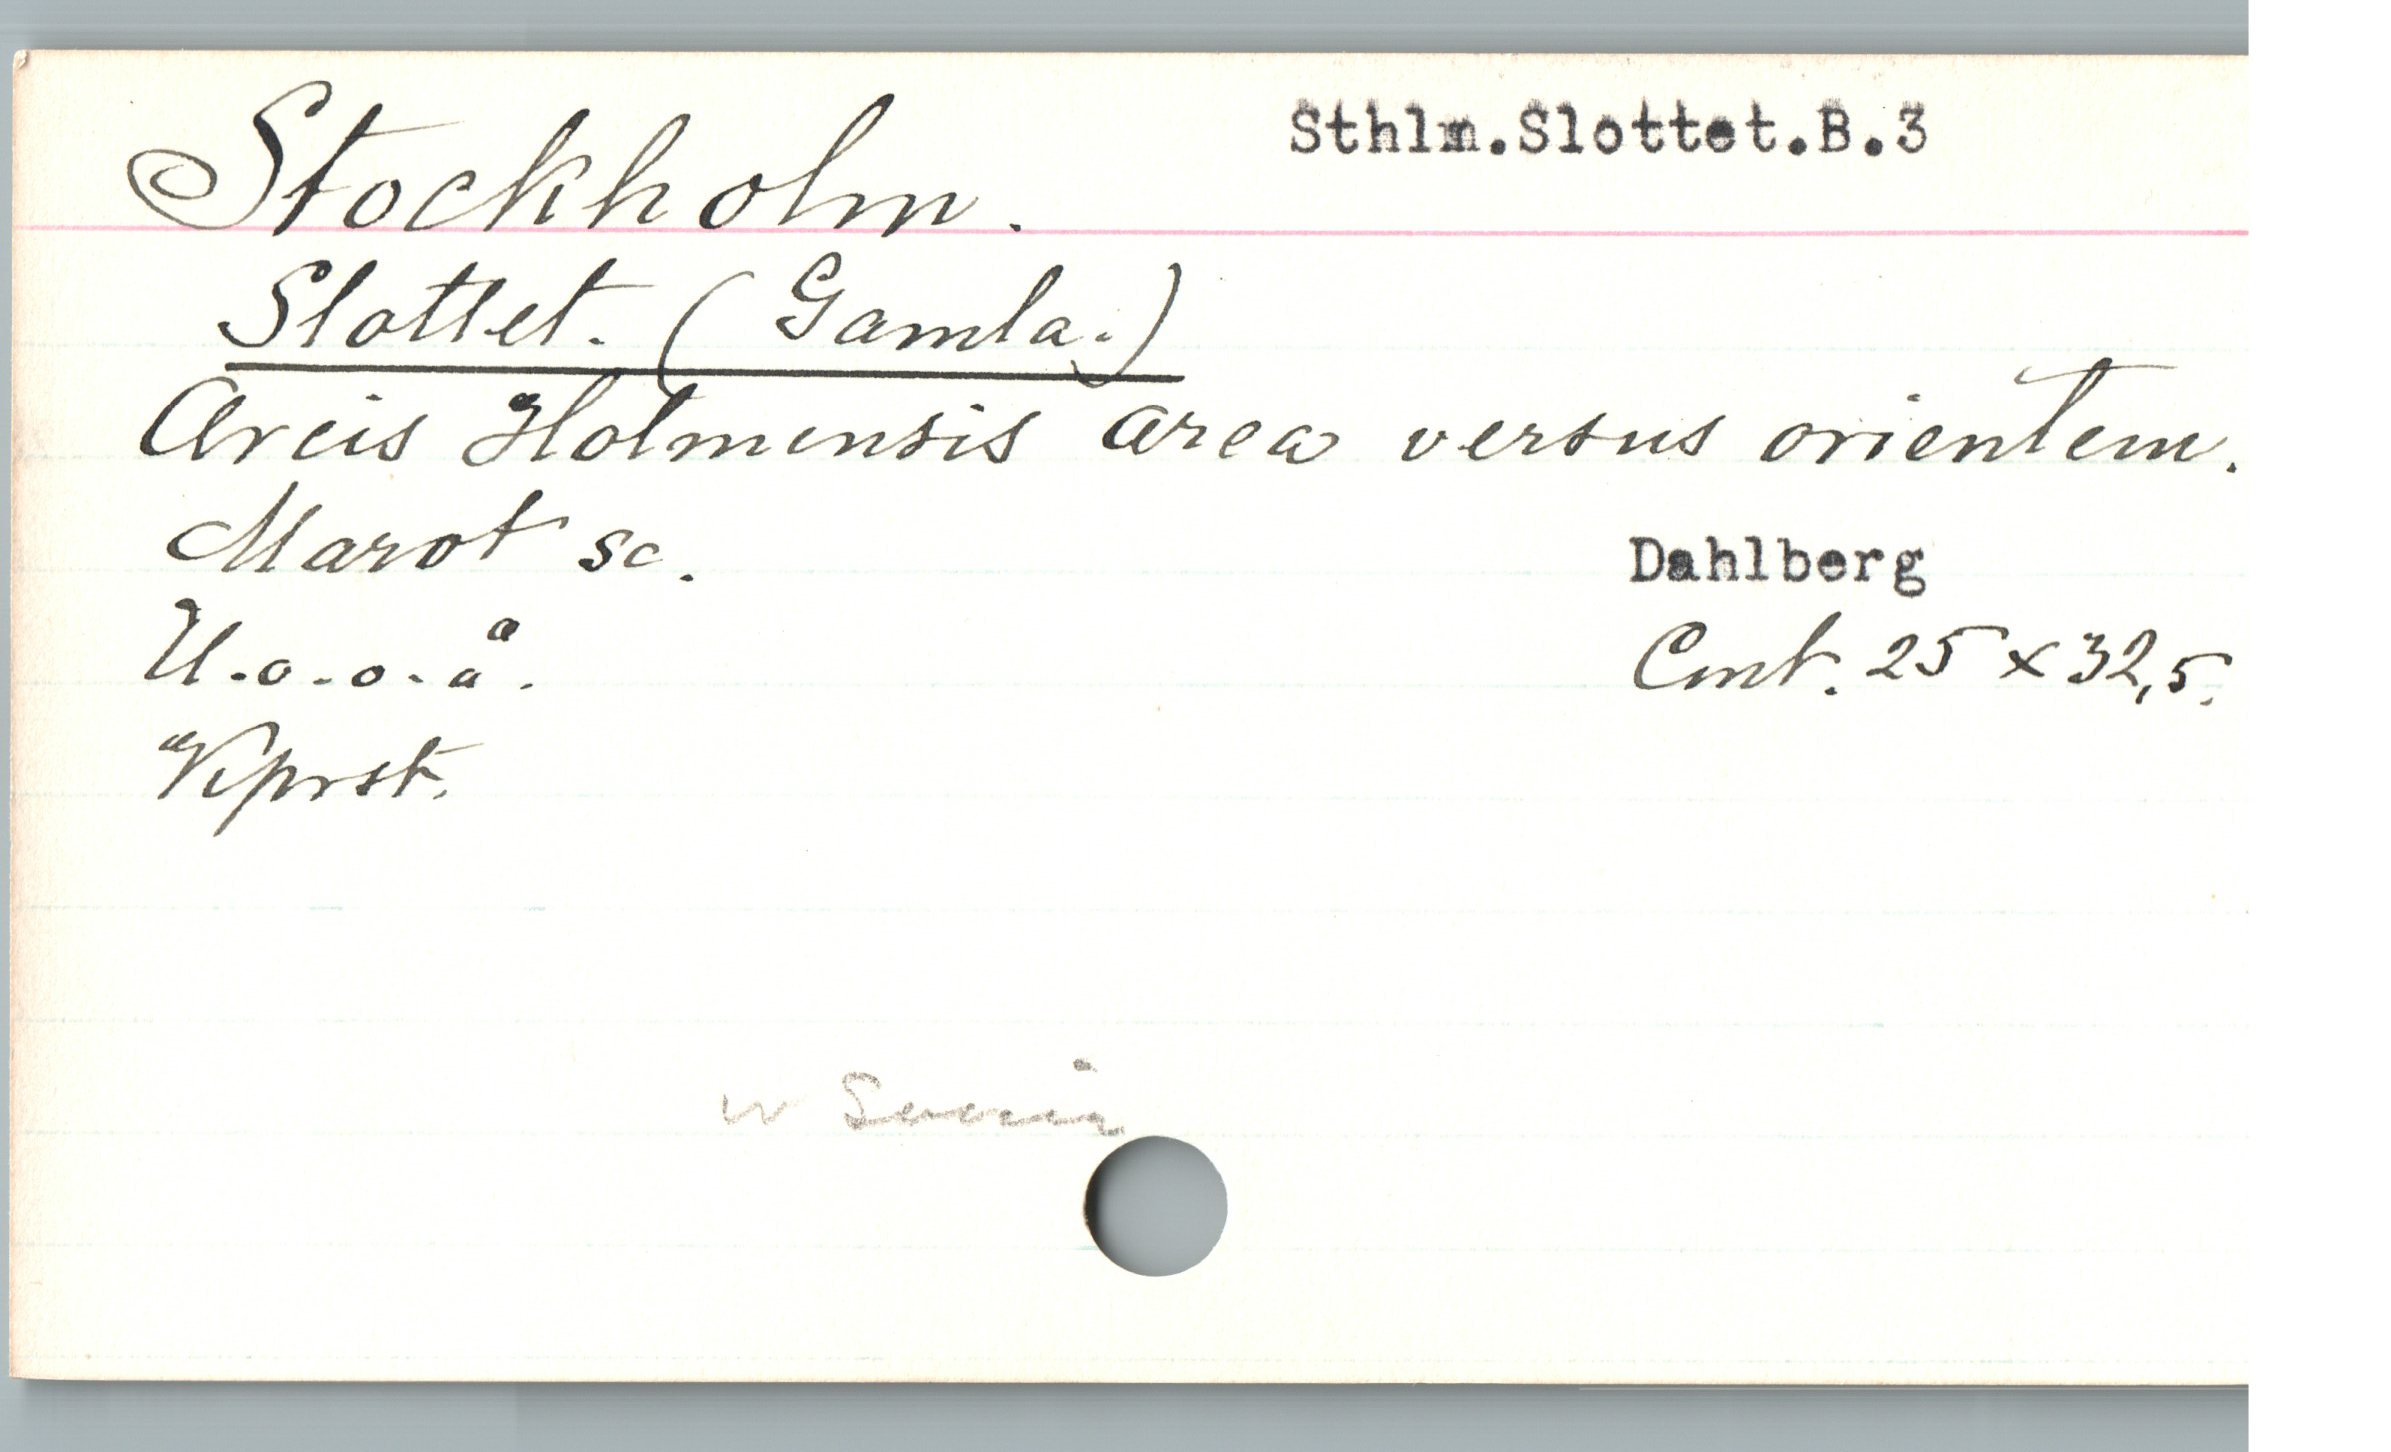 Stockholm.
Sthlm.Slottet.B.3
Slottet. (Gamla.)
Arcis Holmensis area versus orientem.
Marot sc.
Dahlberg
U. o. o. å.
Cmt. 25 x 32,5.
Kprst.
ur Suecia